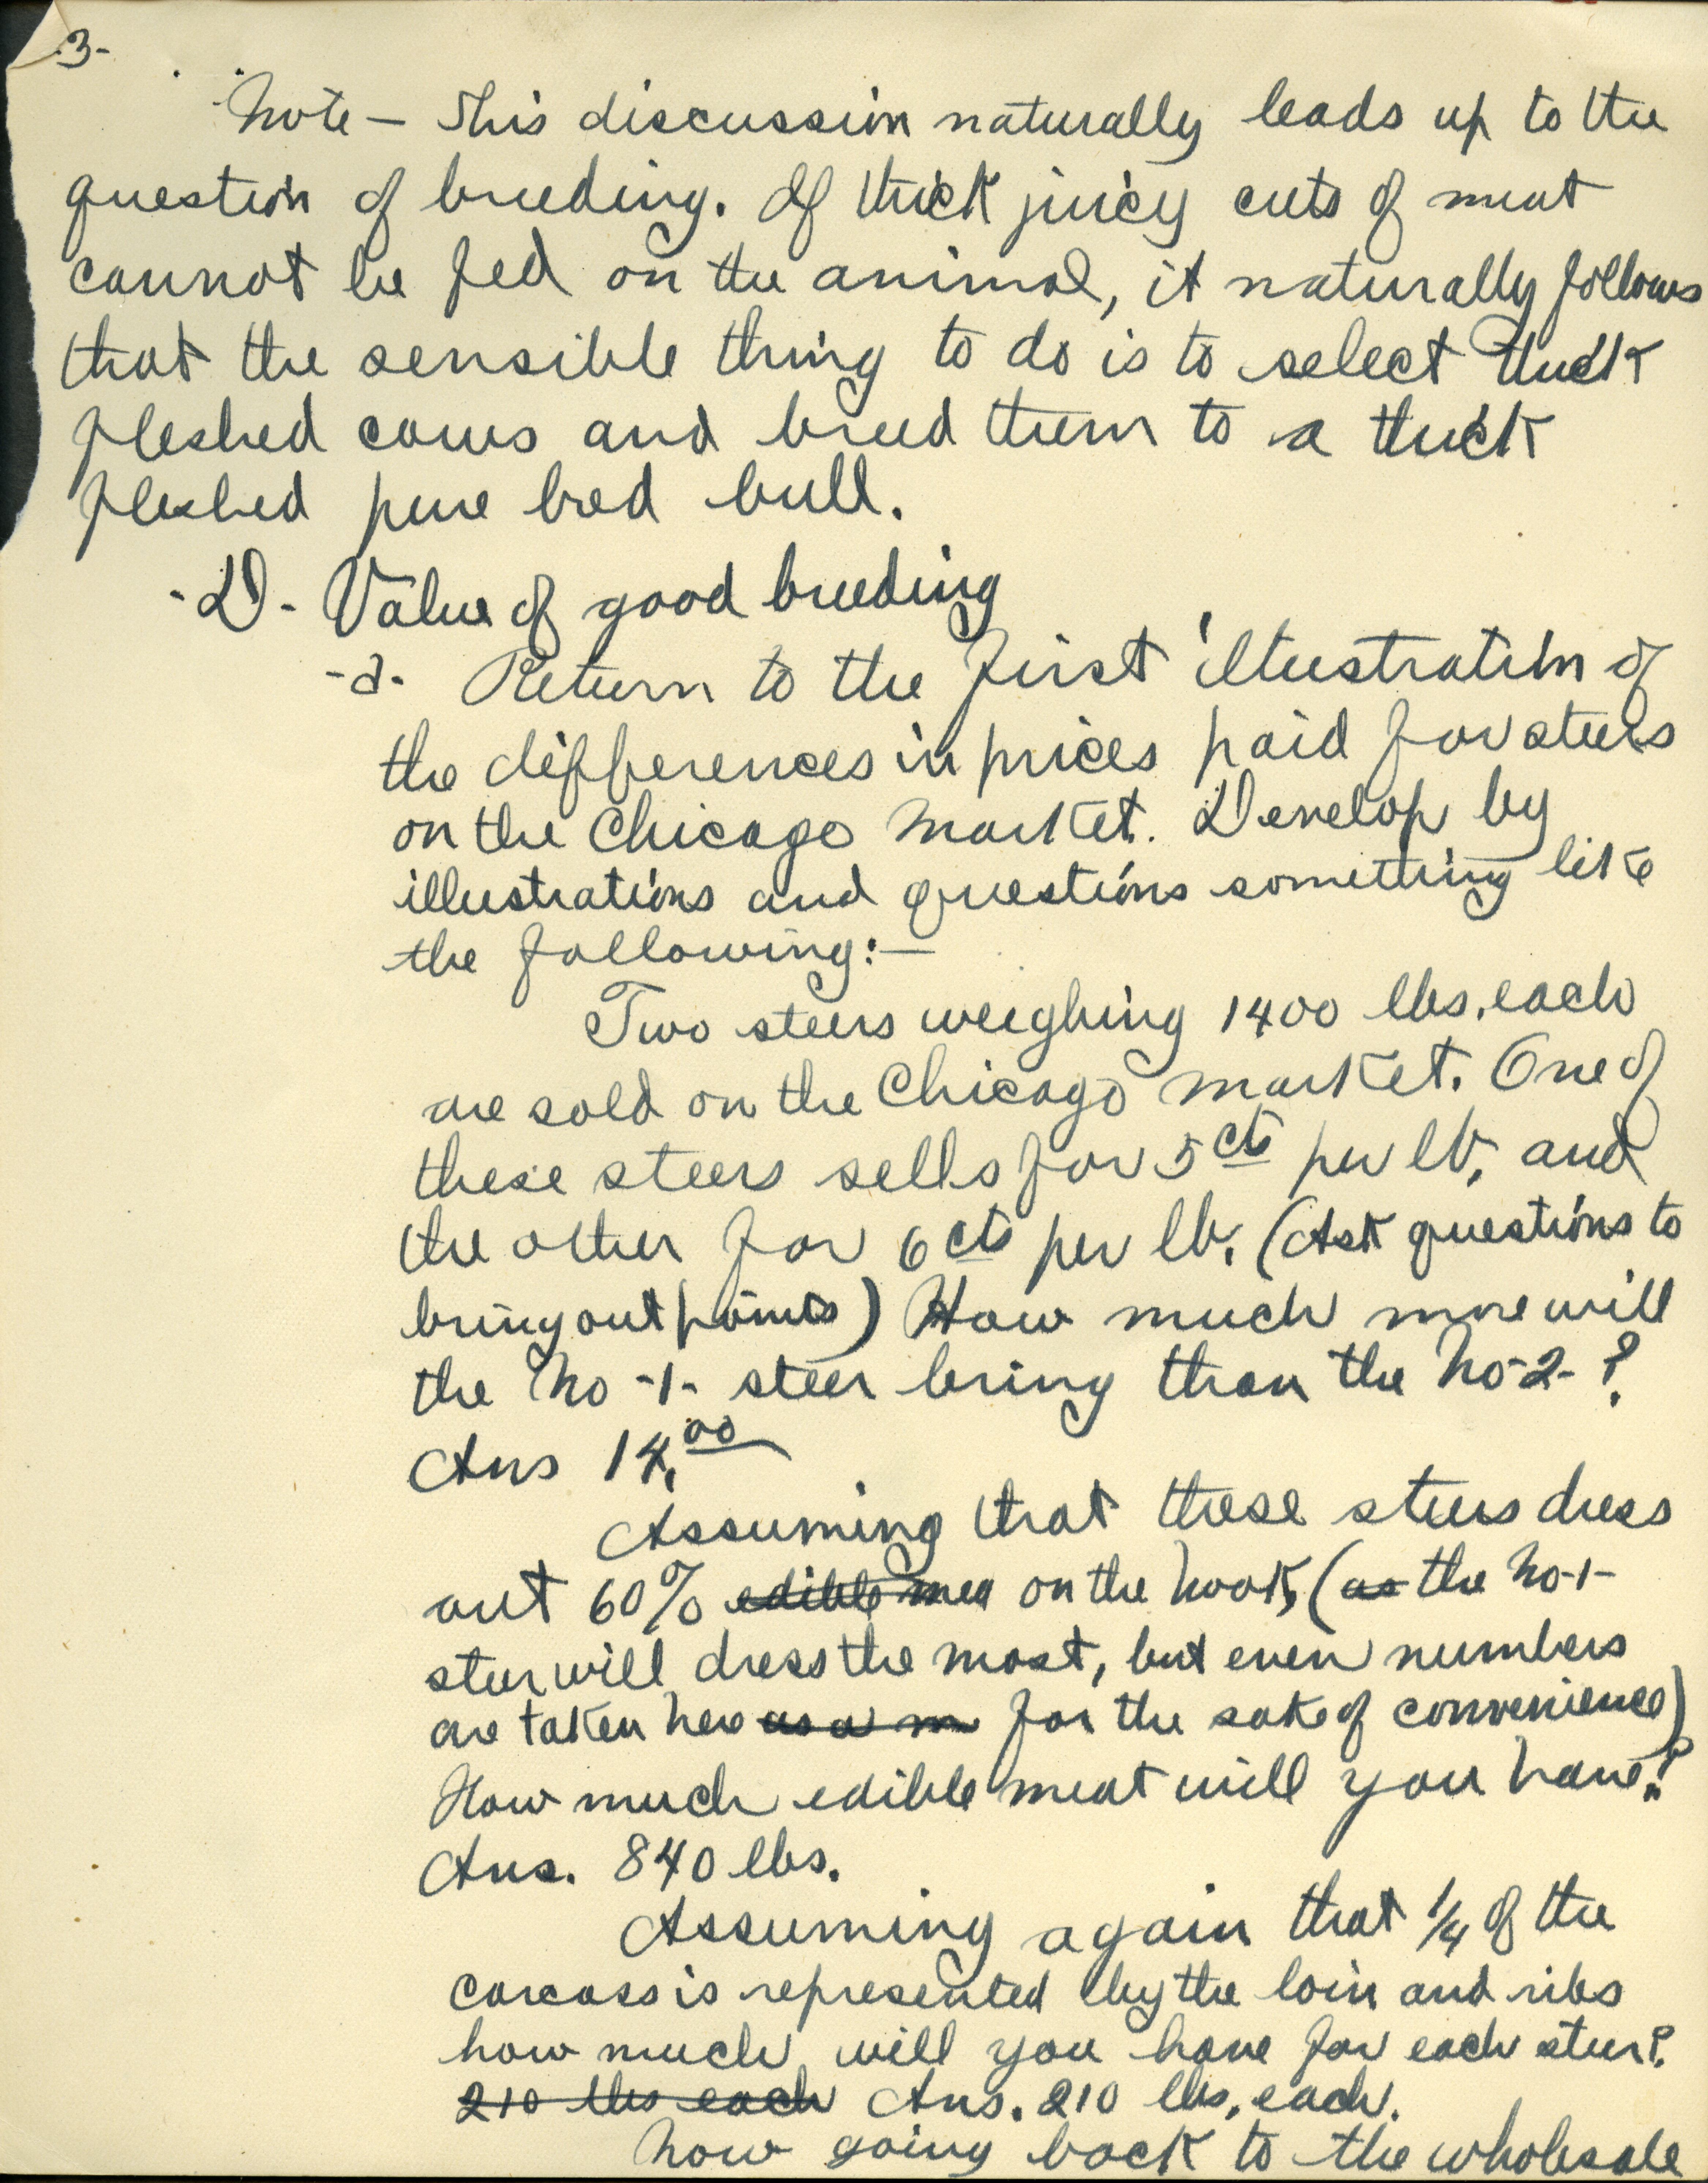 -3-
Note - This discussion naturally leads up to the
question of breeding. If thick juicy cuts of meat
cannot be fed on the animal, it naturally follows
that the sensible thing to do is to select thick
fleshed cows and breed them to a thick
fleshed pure bred bull.
-D- Value of good breeding
-a- Return to the first illustration of
the differences in prices paid for steers
on the Chicago market. Develop by
illustrations and questions something like
the following:-
Two steers weighing 1400 lbs. each
are sold on the Chicago market. One of
these steers sells for 5 cts per lb. and
the other for 6 cts per lb. (Ask questions to
bring out points) How much more will
the No -1- steer bring than the No-2-?
Ans 14.00
Assuming that these steers dress
out 60% edible mea on the hook, (as the No-1-
steer will dress the most, but even numbers
are taken here as a m for the sake of convenience)
How much edible meat will you have?
Ans. 840 lbs.
Assuming again that 1/4 of the
carcass is represented by the loin and ribs
how much will you have for each steer?
210 lbs each Ans. 210 lbs. each.
Now going back to the wholesale